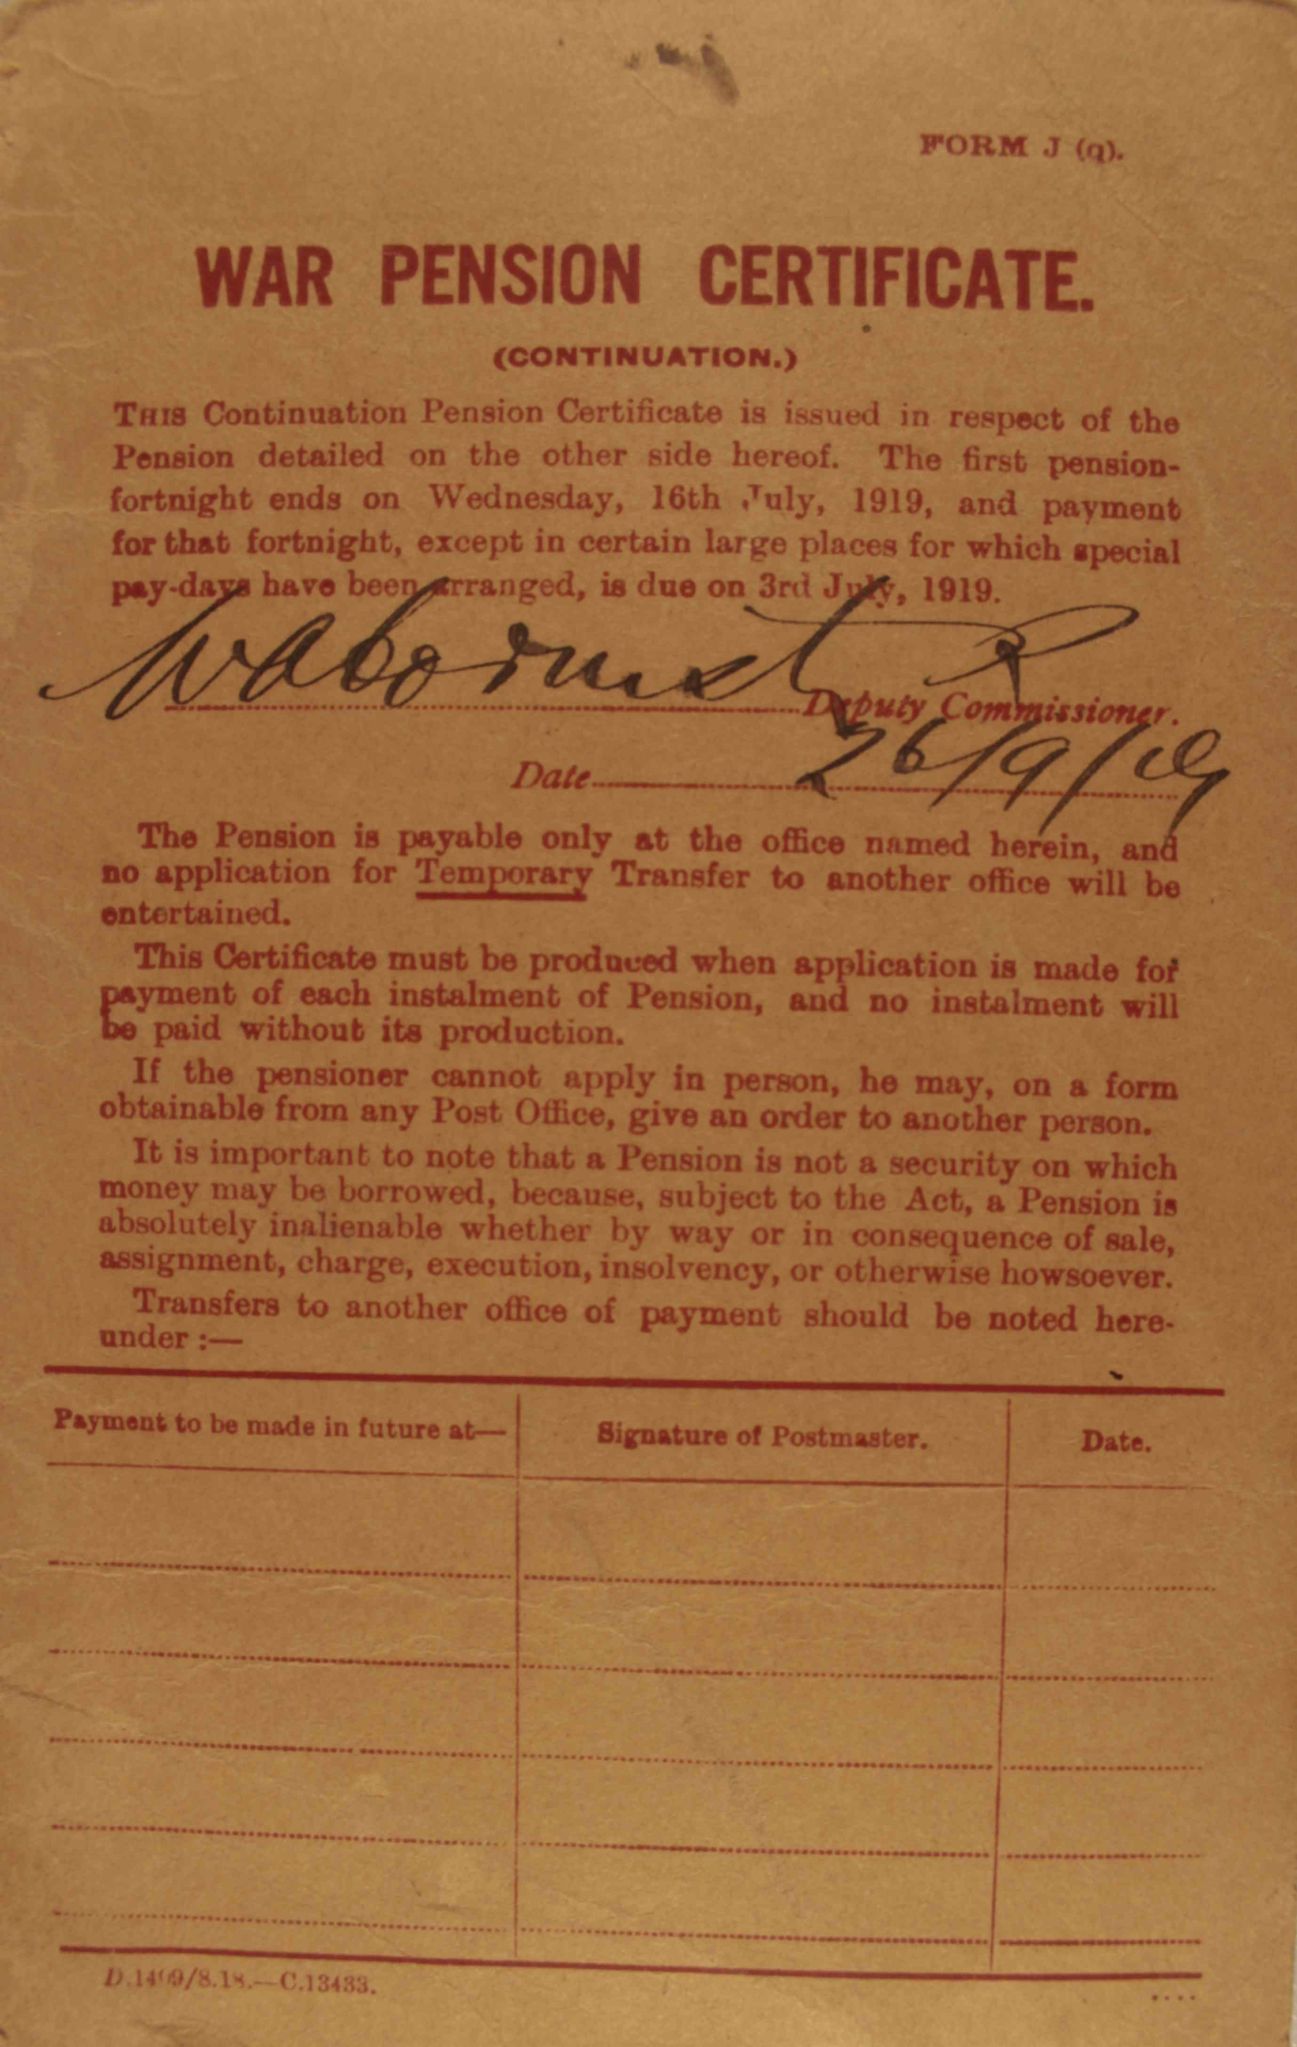 FORM J (q).
WAR PENSION CERTIFICATE.
(CONTINUATION.)
THIS Continuation Pension Certificate is issued in respect of the
Pension detailed on the other side hereof. The first pension-
fortnight ends on Wednesday, 16th July, 1919, and payment
for that fortnight, except in certain large places for which special
pay-days have been arranged, is due on 3rd July, 1919.
Deputy Commissioner.
Date 26/9/19
The Pension is payable only at the office named herein, and
no application for Temporary Transfer to another office will be
entertained.
This Certificate must be produced when application is made for
payment of each instalment of Pension, and no instalment will
be paid without its production.
If the pensioner cannot apply in person, he may, on a form
obtainable from any Post Office, give an order to another person.
It is important to note that a Pension is not a security on which
money may be borrowed, because, subject to the Act, a Pension is
absolutely inalienable whether by way or in consequence of sale,
assignment, charge, execution, insolvency, or otherwise howsoever.
Transfers to another office of payment should be noted here-
under :—
Payment to be made in future at— Signature of Postmaster. Date.
D.1409/8.18.—C.13433.